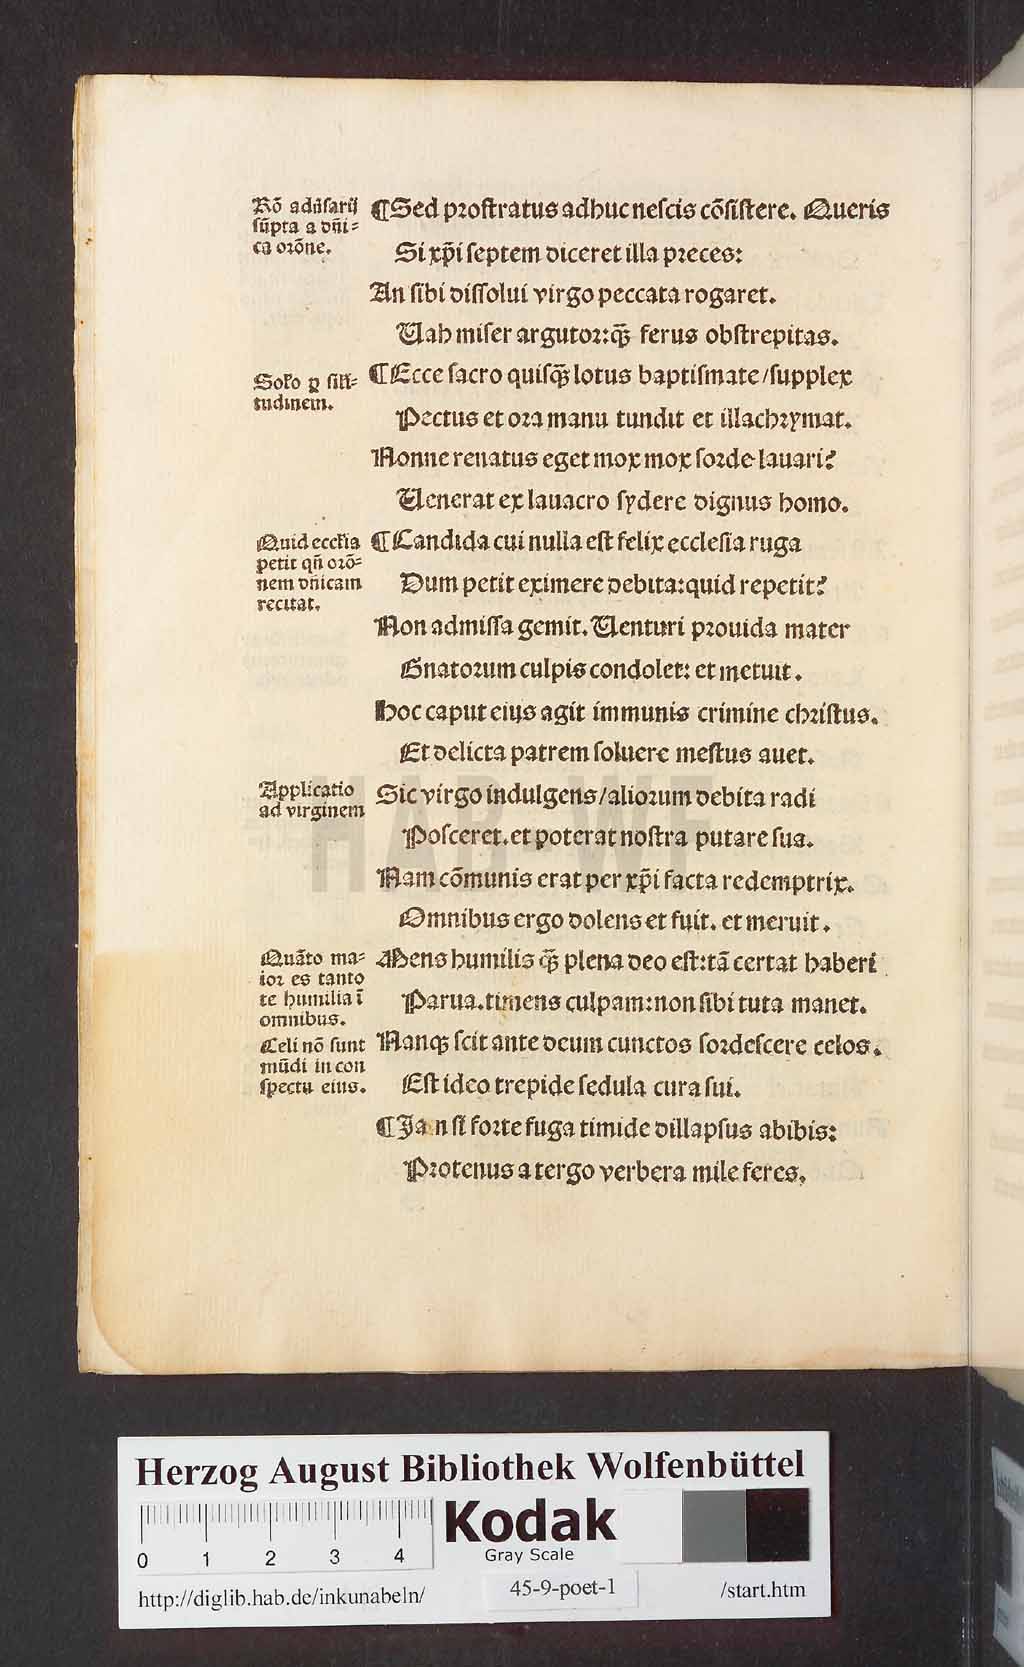 Rō aduſarij
ſūpta a dn̄i=
ca orōne.
¶Sed proſtratus adhuc neſcis cōſiſtere. Queris
Si xp̄i ſeptem diceret illa preces:
An ſibi diſſolui virgo peccata rogaret.
Uah miſer argutor: q̄ ferus obſtrepitas.
tudinem.
¶Ecce ſacro quiſq̄ lotus baptiſmate/ſupplex
Pectus et ora manu tundit et illachrymat.
Nonne renatus eget mox mox ſorde lauari?
Uenerat ex lauacro ſydere dignus homo.
Quid eccľia
petit qn̄ orō=
nem dn̄icam
recitat.
¶Candida cui nulla eſt felix eccleſia ruga
Dum petit eximere debita: quid repetit?
Non admiſſa gemit. Uenturi prouida mater
Gnatorum culpis condolet: et metuit.
Hoc caput eius agit immunis crimine chriſtus.
Et delicta patrem ſoluere meſtus auet.
Applicatio
ad virginem
Sic virgo indulgens/aliorum debita radi
Poſceret. et poterat noſtra putare ſua.
Nam cōmunis erat per xp̄i facta redemptrix.
Omnibus ergo dolens et fuit. et meruit.
Quāto ma=
ior es tanto
te humilia ī
omnibus.
Mens humilis q̄ plena deo eſt: tā certat haberi
Parua. timens culpam: non ſibi tuta manet.
Celi nō ſunt
mūdi in con
ſpectu eius.
Nanq; ſcit ante deum cunctos ſordeſcere celos.
Eſt ideo trepide ſedula cura ſui.
¶Ja n ſi forte fuga timide dillapſus abibis:
Protenus a tergo verbera mile feres.
HAB-WF
Herzog August Bibliothek Wolfenbüttel
0 1 2 3 4
Kodak
Gray Scale
http://diglib.hab.de/inkunabeln/
45-9-poet-1
/start.htm